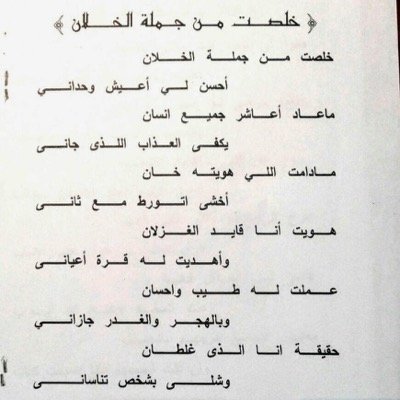 ﴿ خلصت من جملة الخلان ﴾
خلصت من جملة الخلان
أحسن لي أعيش وحداني
ماعاد أعاشر جميع انسان
يكفى العذاب اللذى جانى
مادامت اللي هويته خان
أخشى اتورط مع ثانى
هويت أنا قايد الغزلان
وأهديت له قرة أعيانى
عملت له طيب واحسان
وبالهجر والغدر جازاني
حقيقة انا الذى غلطان
وشلى بشخص تناسانى